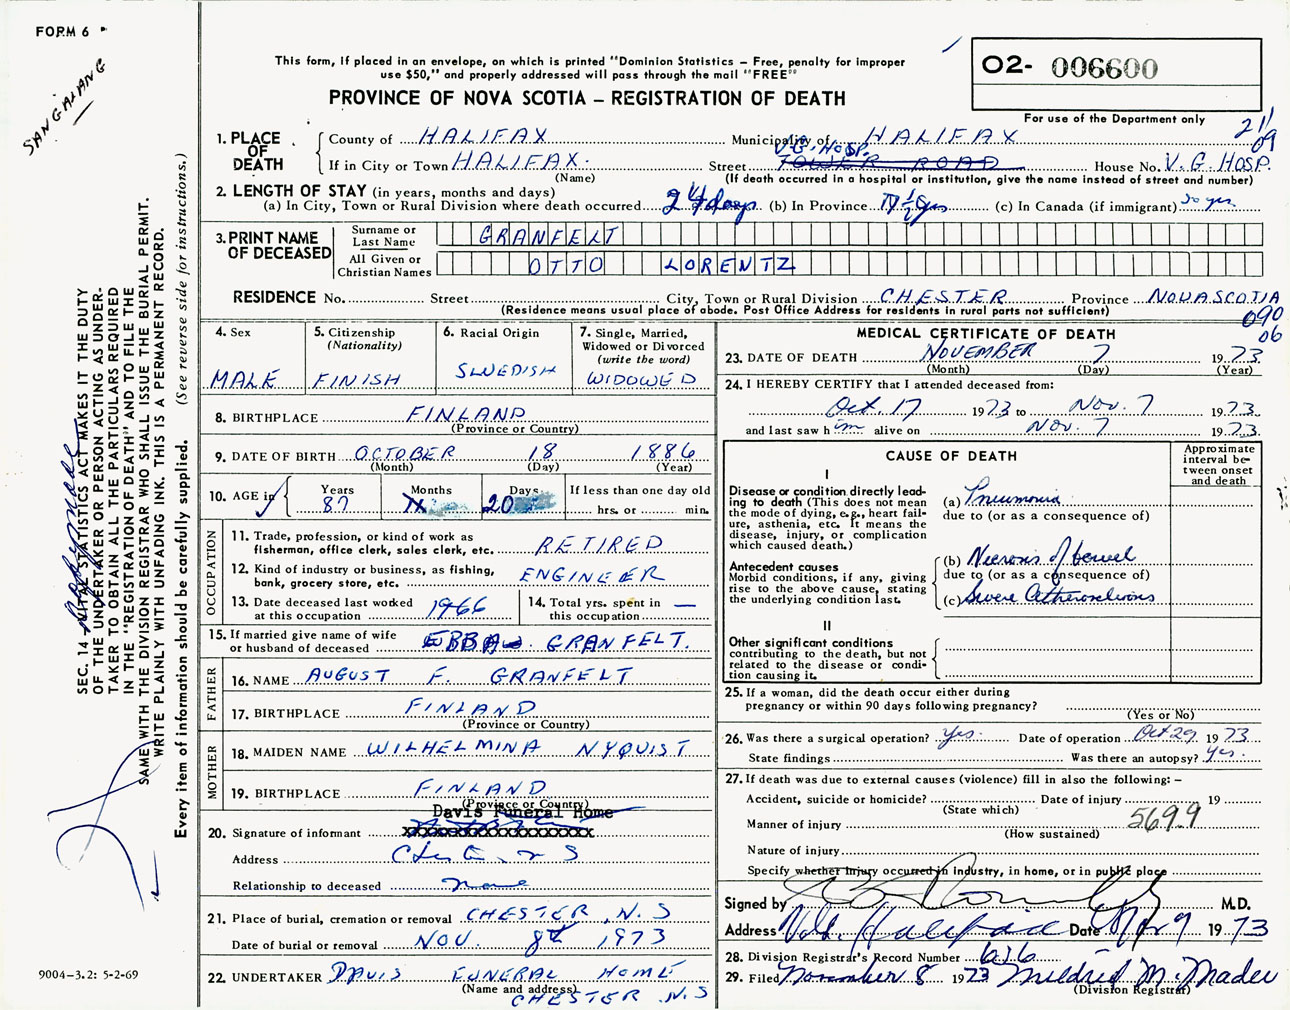 FORM 6
SANGAHANG
This form, if placed in an envelope, on which is printed "Dominion Statistics – Free, penalty for improper
use $50," and properly addressed will pass through the mail "FREE"
PROVINCE OF NOVA SCOTIA – REGISTRATION OF DEATH
O2- 006600
For use of the Department only
211
09
1. PLACE OF DEATH
County of HALIFAX Municipality of HALIFAX
V.G. HOSP.
If in City or Town HALIFAX. Street TOWER ROAD House No. V.G. HOSP.
(Name) (If death occurred in a hospital or institution, give the name instead of street and number)
2. LENGTH OF STAY (in years, months and days)
(a) In City, Town or Rural Division where death occurred 24 days (b) In Province (c) In Canada (if immigrant) 50 yrs.
3. PRINT NAME OF DECEASED
Surname or Last Name GRANFELT
All Given or Christian Names OTTO LORENTZ
RESIDENCE No. Street City, Town or Rural Division CHESTER Province NOVA SCOTIA
(Residence means usual place of abode. Post Office Address for residents in rural parts not sufficient)
090
06
4. Sex MALE
5. Citizenship (Nationality) FINISH
6. Racial Origin SWEDISH
7. Single, Married, Widowed or Divorced (write the word) WIDOWED
8. BIRTHPLACE FINLAND
(Province or Country)
9. DATE OF BIRTH OCTOBER 18 1886
(Month) (Day) (Year)
10. AGE in Years 87 Months Days 20 If less than one day old hrs. or min.
OCCUPATION
11. Trade, profession, or kind of work as fisherman, office clerk, sales clerk, etc. RETIRED
12. Kind of industry or business, as fishing, bank, grocery store, etc. ENGINEER
13. Date deceased last worked at this occupation 1966
14. Total yrs. spent in this occupation —
15. If married give name of wife or husband of deceased EBBA GRANFELT.
FATHER
16. NAME AUGUST F. GRANFELT
17. BIRTHPLACE FINLAND
(Province or Country)
MOTHER
18. MAIDEN NAME WILHELMINA NYQUIST
19. BIRTHPLACE FINLAND
(Province or Country)
Davis Funeral Home
20. Signature of informant xxxxxxxxxxxxxxxxxxxxxx
Address Chester N S
Relationship to deceased none
21. Place of burial, cremation or removal CHESTER, N.S
Date of burial or removal NOV. 8th 1973
22. UNDERTAKER DAVIS FUNERAL HOME
(Name and address)
CHESTER N.S
MEDICAL CERTIFICATE OF DEATH
23. DATE OF DEATH NOVEMBER 7 1973
(Month) (Day) (Year)
24. I HEREBY CERTIFY that I attended deceased from:
Oct. 17 1973 to Nov. 7 1973
and last saw him alive on Nov. 7 1973
CAUSE OF DEATH
Approximate interval between onset and death
I
Disease or condition directly leading to death (This does not mean the mode of dying, e.g., heart failure, asthenia, etc. It means the disease, injury, or complication which caused death.)
(a) Pneumonia
due to (or as a consequence of)
Antecedent causes
Morbid conditions, if any, giving rise to the above cause, stating the underlying condition last.
(b) Necrosis of bowel
due to (or as a consequence of)
(c) Severe Atherosclerosis
II
Other significant conditions contributing to the death, but not related to the disease or condition causing it.
25. If a woman, did the death occur either during pregnancy or within 90 days following pregnancy?
(Yes or No)
26. Was there a surgical operation? yes. Date of operation Oct 29 1973
State findings Was there an autopsy? yes.
27. If death was due to external causes (violence) fill in also the following: –
Accident, suicide or homicide? Date of injury 19
(State which)
Manner of injury 569.9
(How sustained)
Nature of injury
Specify whether injury occurred in industry, in home, or in public place
Signed by M.D.
Address V.G. Halifax Date Nov 9 1973
28. Division Registrar's Record Number 636
29. Filed November 8 1973 Mildred M. Mader
(Division Registrar)
SEC. 14 VITAL STATISTICS ACT MAKES IT THE DUTY
OF THE UNDERTAKER OR PERSON ACTING AS UNDER-
TAKER TO OBTAIN ALL THE PARTICULARS REQUIRED
IN THE "REGISTRATION OF DEATH" AND TO FILE THE
SAME WITH THE DIVISION REGISTRAR WHO SHALL ISSUE THE BURIAL PERMIT.
WRITE PLAINLY WITH UNFADING INK. THIS IS A PERMANENT RECORD.
Every item of information should be carefully supplied. (See reverse side for instructions.)
9004-3.2: 5-2-69